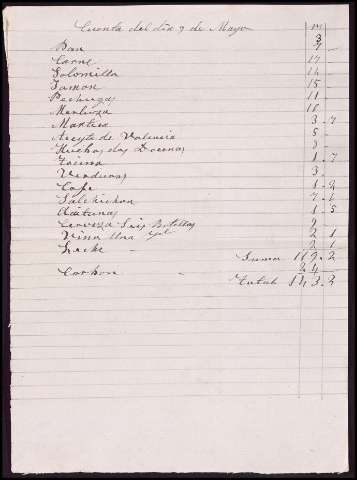 Cuenta del dia 9 de Mayo
3
Pan 7
Carne 17
Solomillo 14
Jamon 15
Pechugas 11
Merluza 16
Manteca 3.7
Aceyte de Valencia 5
Huebos dos Docenas 3
Tocino 1.7
Verduras 3
Cafe 1.2
Salchichon 7.1
Aseitunas 1.5
Cerveza Seis Botellas
Vino Una 2.1
Leche 2.1
Suma 119.2
Carbon 24
Total 143.2